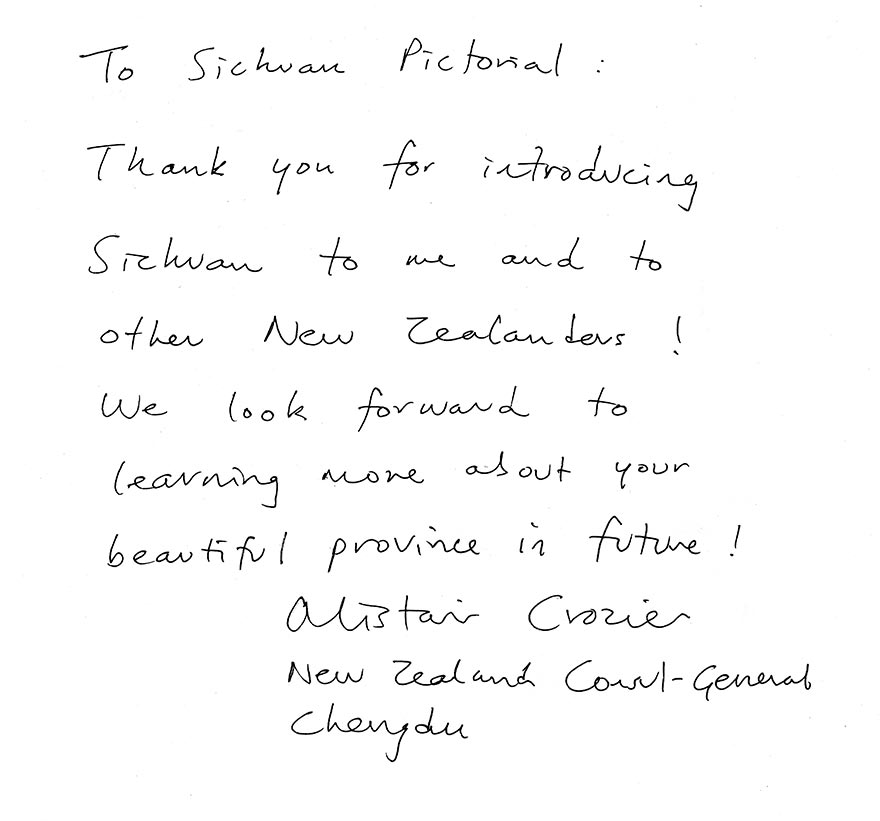 To Sichuan Pictorial :
Thank you for introducing
Sichuan to me and to
other New Zealanders !
We look forward to
learning more about your
beautiful province in future !
Alistair Crozier
New Zealand Consul-General
Chengdu